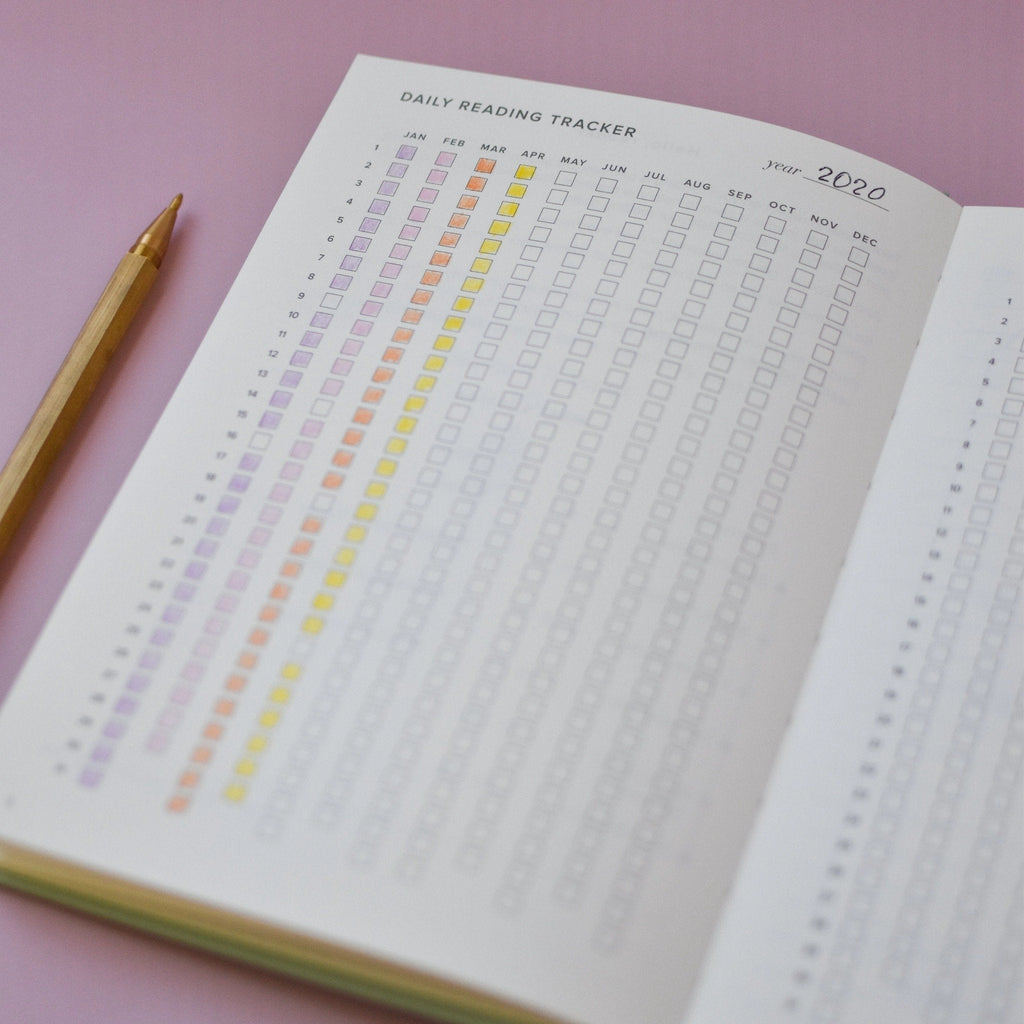 DAILY READING TRACKER
year 2020
JAN FEB MAR APR MAY JUN JUL AUG SEP OCT NOV DEC
1
2
3
4
5
6
7
8
9
10
11
12
13
14
15
16
17
18
19
20
21
1
2
3
4
5
6
7
8
9
10
11
12
13
14